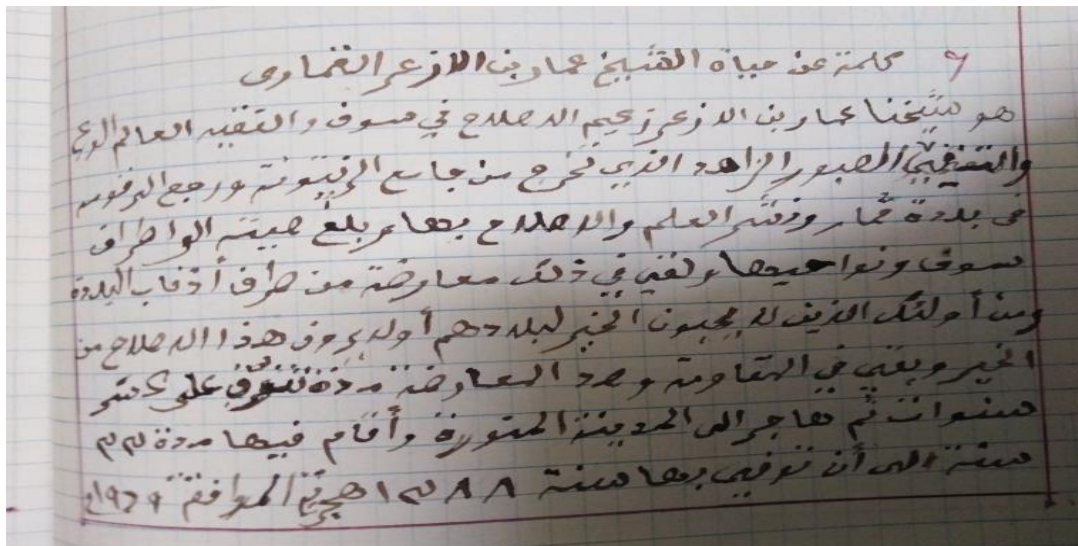 9 كلمة عن حياة الشيخ عمار بن الازعر القماري
هو شيخنا عمار بن الازعر زعيم الاصلاح في سوف والفقيه العالم الورع
الصبور الزاهد الذي تخرج من جامع الزيتونة ورجع
في بلدة قمار ونشر العلم والاصلاح بها وبلغ صيته الى اطراف
سوف ونواحيها ولقي في ذلك معارضة من طرف أذناب البلدة
ومن أولئك الذين لا يحبون الخير لبلادهم أولا يرون هذا الاصلاح من
الخير وبقي في المقاومة وصد المعارضة مدة تنوف على عشر
سنوات ثم هاجر الى المدينة المنورة وأقام فيها مدة ٣٣
سنة الى أن توفي بها سنة ١٣٨٨ هجرية الموافقة ١٩٦٩م